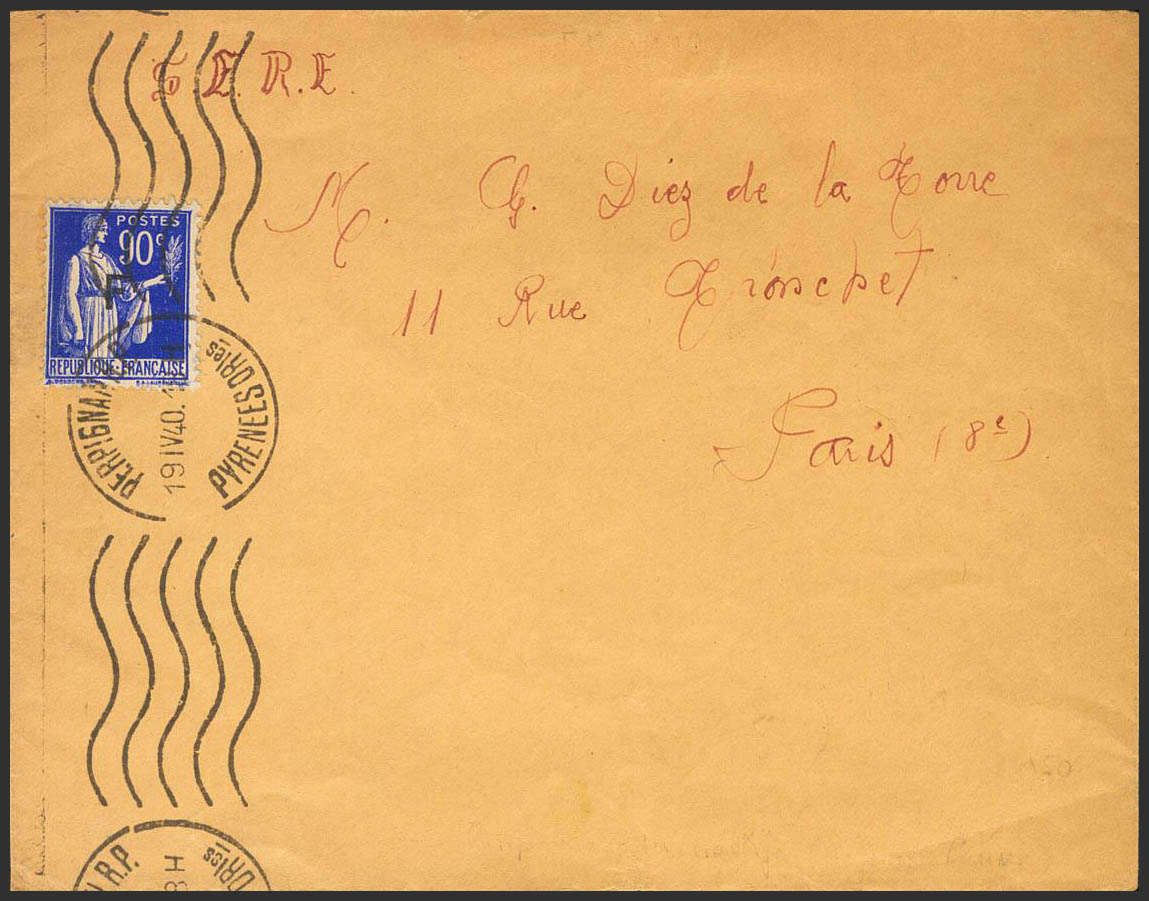 S.E.R.E.
M. G. Diez de la Torre
11 Rue Tronchet
Paris (8e).
POSTES
90c
F
REPUBLIQUE FRANÇAISE
PERPIGNAN
19 IV 40.
PYRENEES ORles
R.P.
8 H
ORles